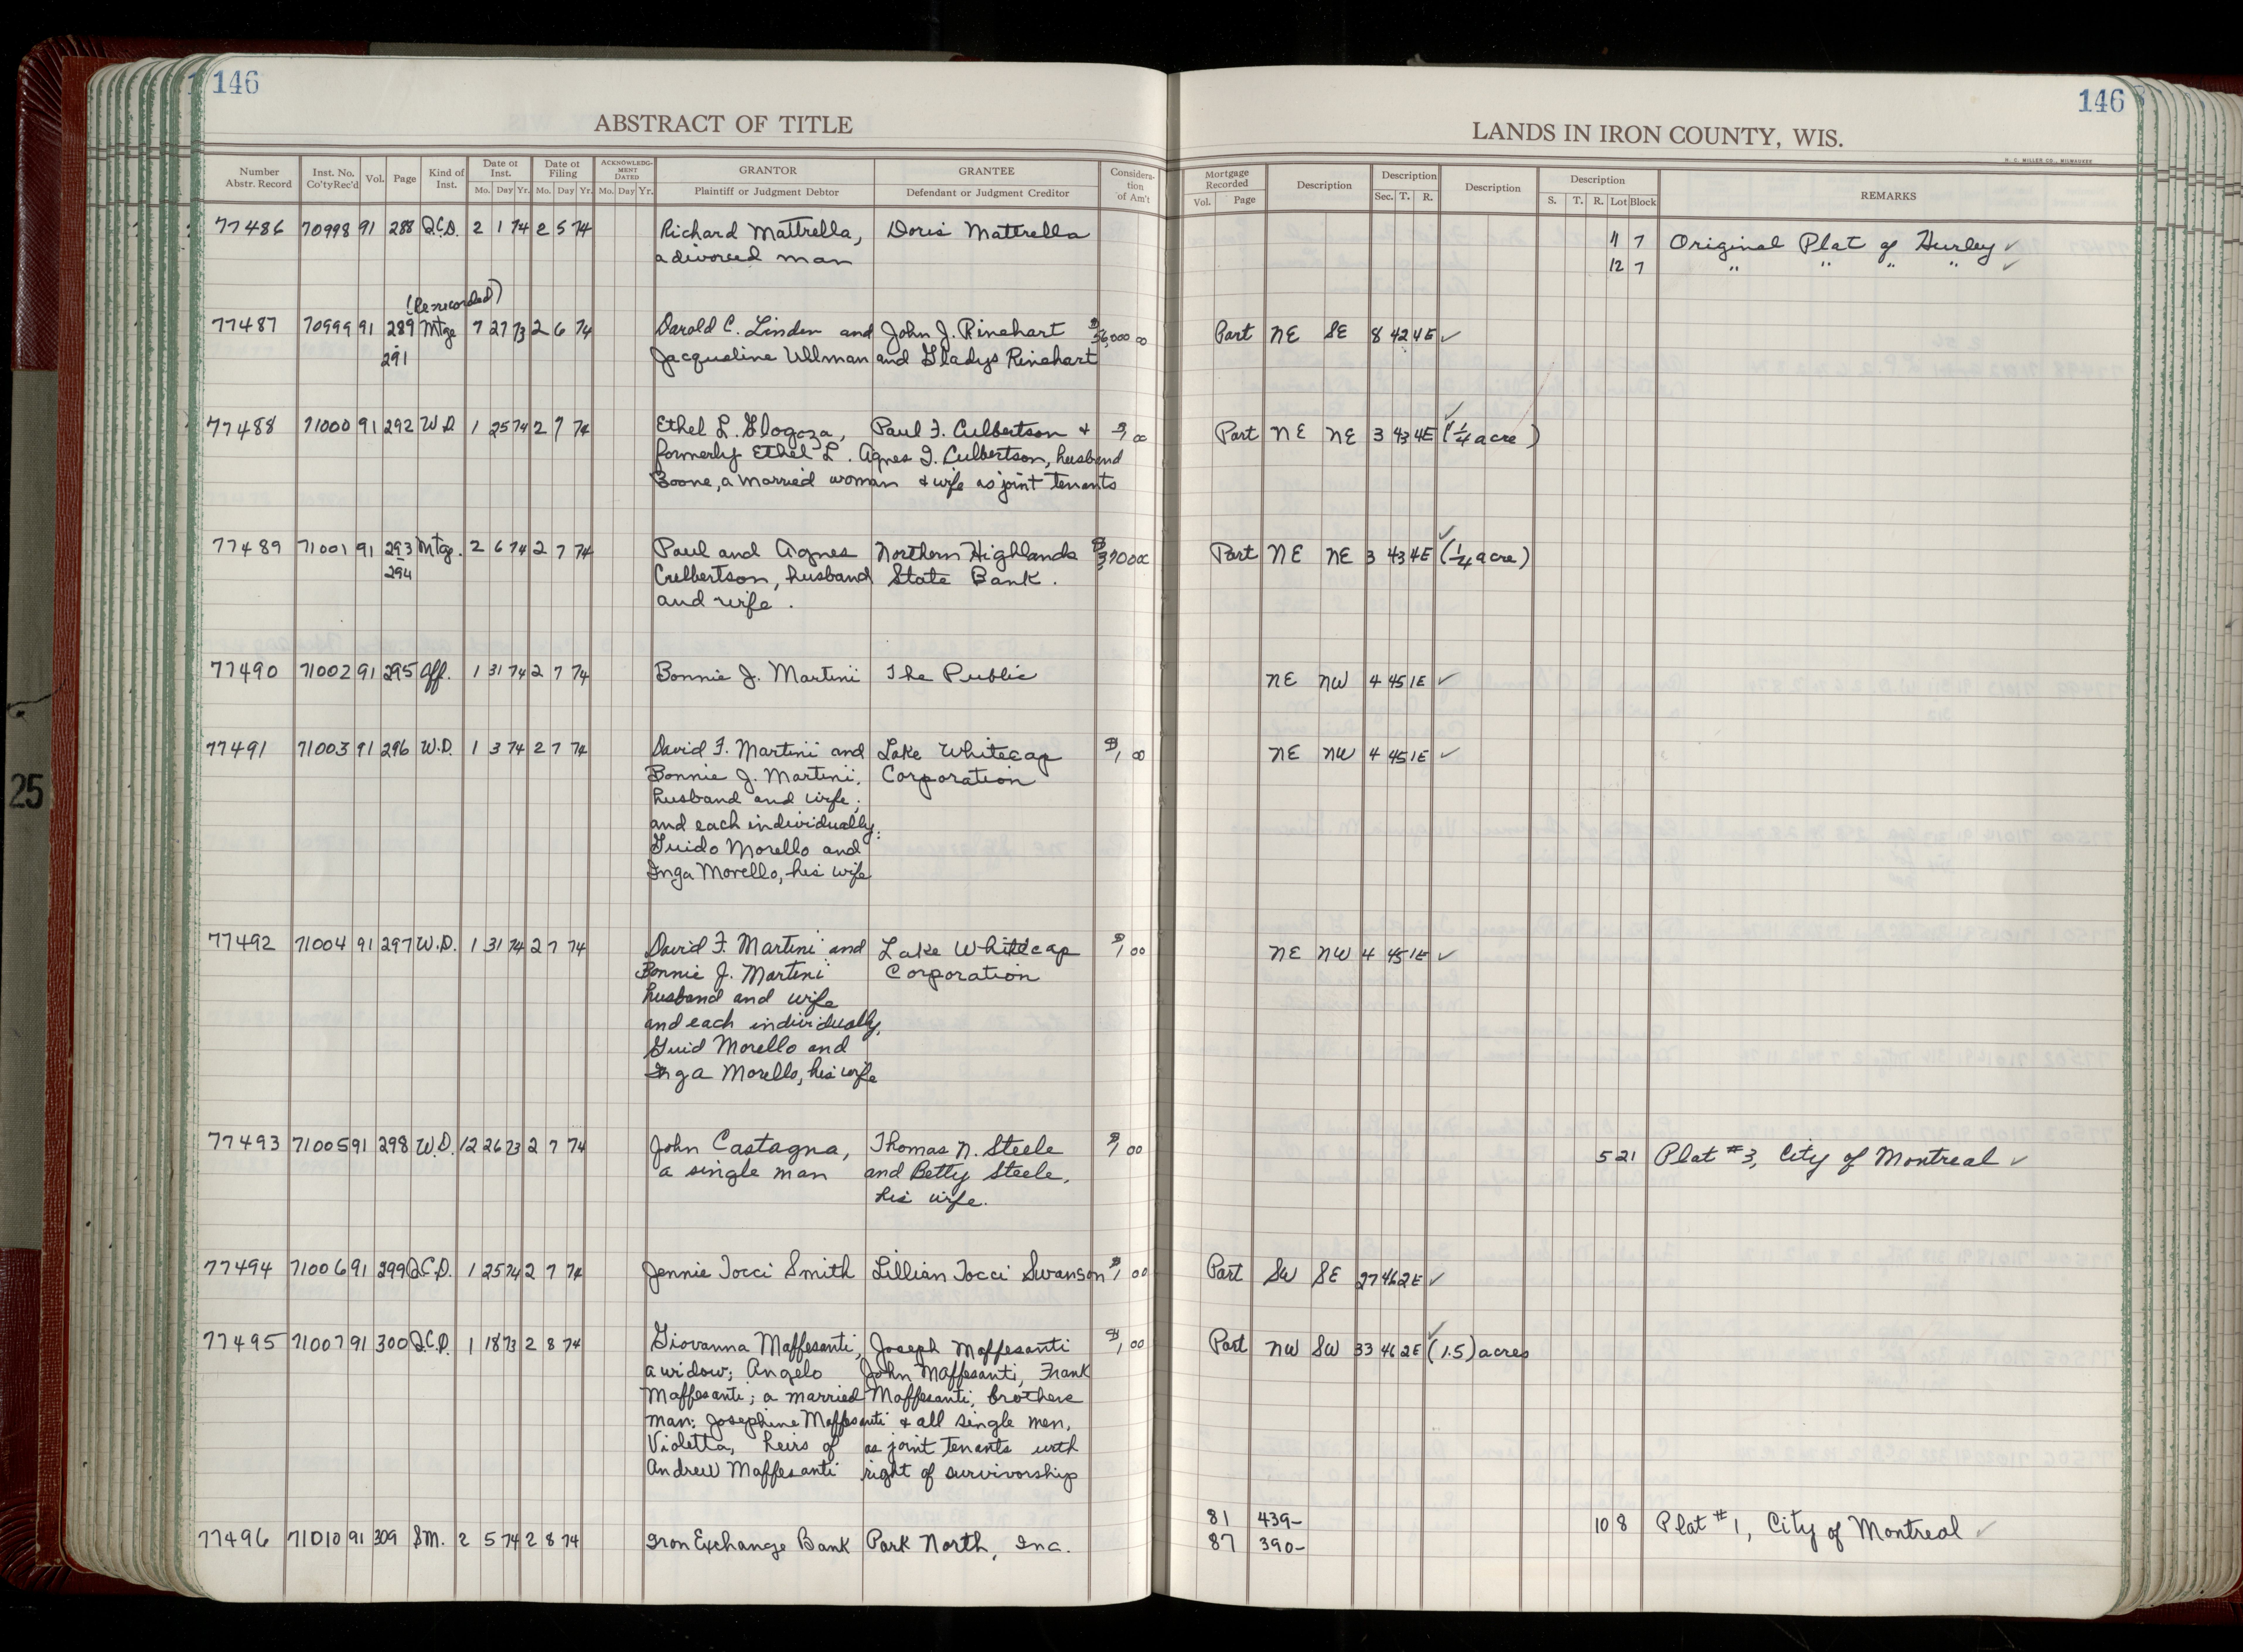 146
146
ABSTRACT OF TITLE
LANDS IN IRON COUNTY, WIS.
H. C. MILLER CO., MILWAUKEE
Number Abstr. Record Inst. No. Co'ty Rec'd Vol. Page Kind of Inst. Date of Inst. Mo. Day Yr. Date of Filing Mo. Day Yr. ACKNOWLEDGMENT DATED Mo. Day Yr. GRANTOR Plaintiff or Judgment Debtor GRANTEE Defendant or Judgment Creditor Consideration of Am't Mortgage Recorded Vol. Page Description Description Sec. T. R. Description Description S. T. R. Lot Block REMARKS
77486 70998 91 288 Q.C.D. 2 1 74 2 5 74 Richard Mattrella, Doris Mattrella 11 7 Original Plat of Hurley ✓
a divorced man 12 7 " " " " ✓
(Re-recorded)
77487 70999 91 289 Mtge 7 27 73 2 6 74 Darold C. Linden and John J. Rinehart $56,000 00 Part NE SE 8 42 4E ✓
291 Jacqueline Ullman and Gladys Rinehart
77488 71000 91 292 W.D. 1 25 74 2 7 74 Ethel L. Glogoza, Paul F. Culbertson + $1, 00 Part NE NE 3 43 4E (1/4 acre) ✓
formerly Ethel L. Agnes I. Culbertson, husband
Boone, a married woman + wife as joint tenants
77489 71001 91 293 Mtge. 2 6 74 2 7 74 Paul and Agnes Northern Highlands $3700 00 Part NE NE 3 43 4E (1/4 acre) ✓
294 Culbertson, husband State Bank.
and wife.
77490 71002 91 295 Aff. 1 31 74 2 7 74 Bonnie J. Martini The Public NE NW 4 45 1E ✓
77491 71003 91 296 W.D. 1 3 74 2 7 74 David F. Martini and Lake Whitecap $1, 00 NE NW 4 45 1E ✓
Bonnie J. Martini, Corporation
husband and wife;
and each individually;
Guido Morello and
Inga Morello, his wife
77492 71004 91 297 W.D. 1 31 74 2 7 74 David F. Martini and Lake Whitecap $1, 00 NE NW 4 45 1E ✓
Bonnie J. Martini Corporation
husband and wife
and each individually,
Guid Morello and
Inga Morello, his wife
77493 71005 91 298 W.D. 12 26 73 2 7 74 John Castagna, Thomas N. Steele $1, 00 5 21 Plat #3, City of Montreal ✓
a single man and Betty Steele,
his wife.
77494 71006 91 299 Q.C.D. 1 25 74 2 7 74 Jennie Tocci Smith Lillian Tocci Swanson $1, 00 Part SW SE 27 46 2E ✓
77495 71007 91 300 Q.C.D. 1 18 73 2 8 74 Giovanna Maffesanti, Joseph Maffesanti $1, 00 Part NW SW 33 46 2E (1.5) acres ✓
a widow; Angelo John Maffesanti, Frank
Maffesanti; a married Maffesanti, brothers
man; Josephine Maffesanti + all single men,
Violetta, heirs of as joint tenants with
Andrew Maffesanti right of survivorship
77496 71010 91 309 SM. 2 5 74 2 8 74 Iron Exchange Bank Park North, Inc. 81 439- 10 8 Plat #1, City of Montreal ✓
87 390-
25